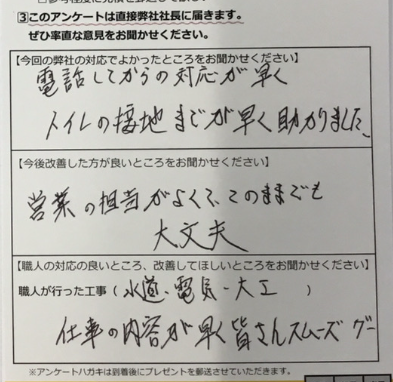 ③このアンケートは直接弊社社長に届きます。
ぜひ率直な意見をお聞かせください。
【今回の弊社の対応でよかったところをお聞かせください】
電話してからの対応が早く
トイレの接地までが早く助かりました。
【今後改善した方が良いところをお聞かせください】
営業の担当がよくて、このままでも
大文夫
【職人の対応の良いところ、改善してほしいところをお聞かせください】
職人が行った工事(水道、電気・大工)
仕事の内容が早く皆さんスムーズ グー
※アンケートハガキは到着後にプレゼントを郵送させていただきます。